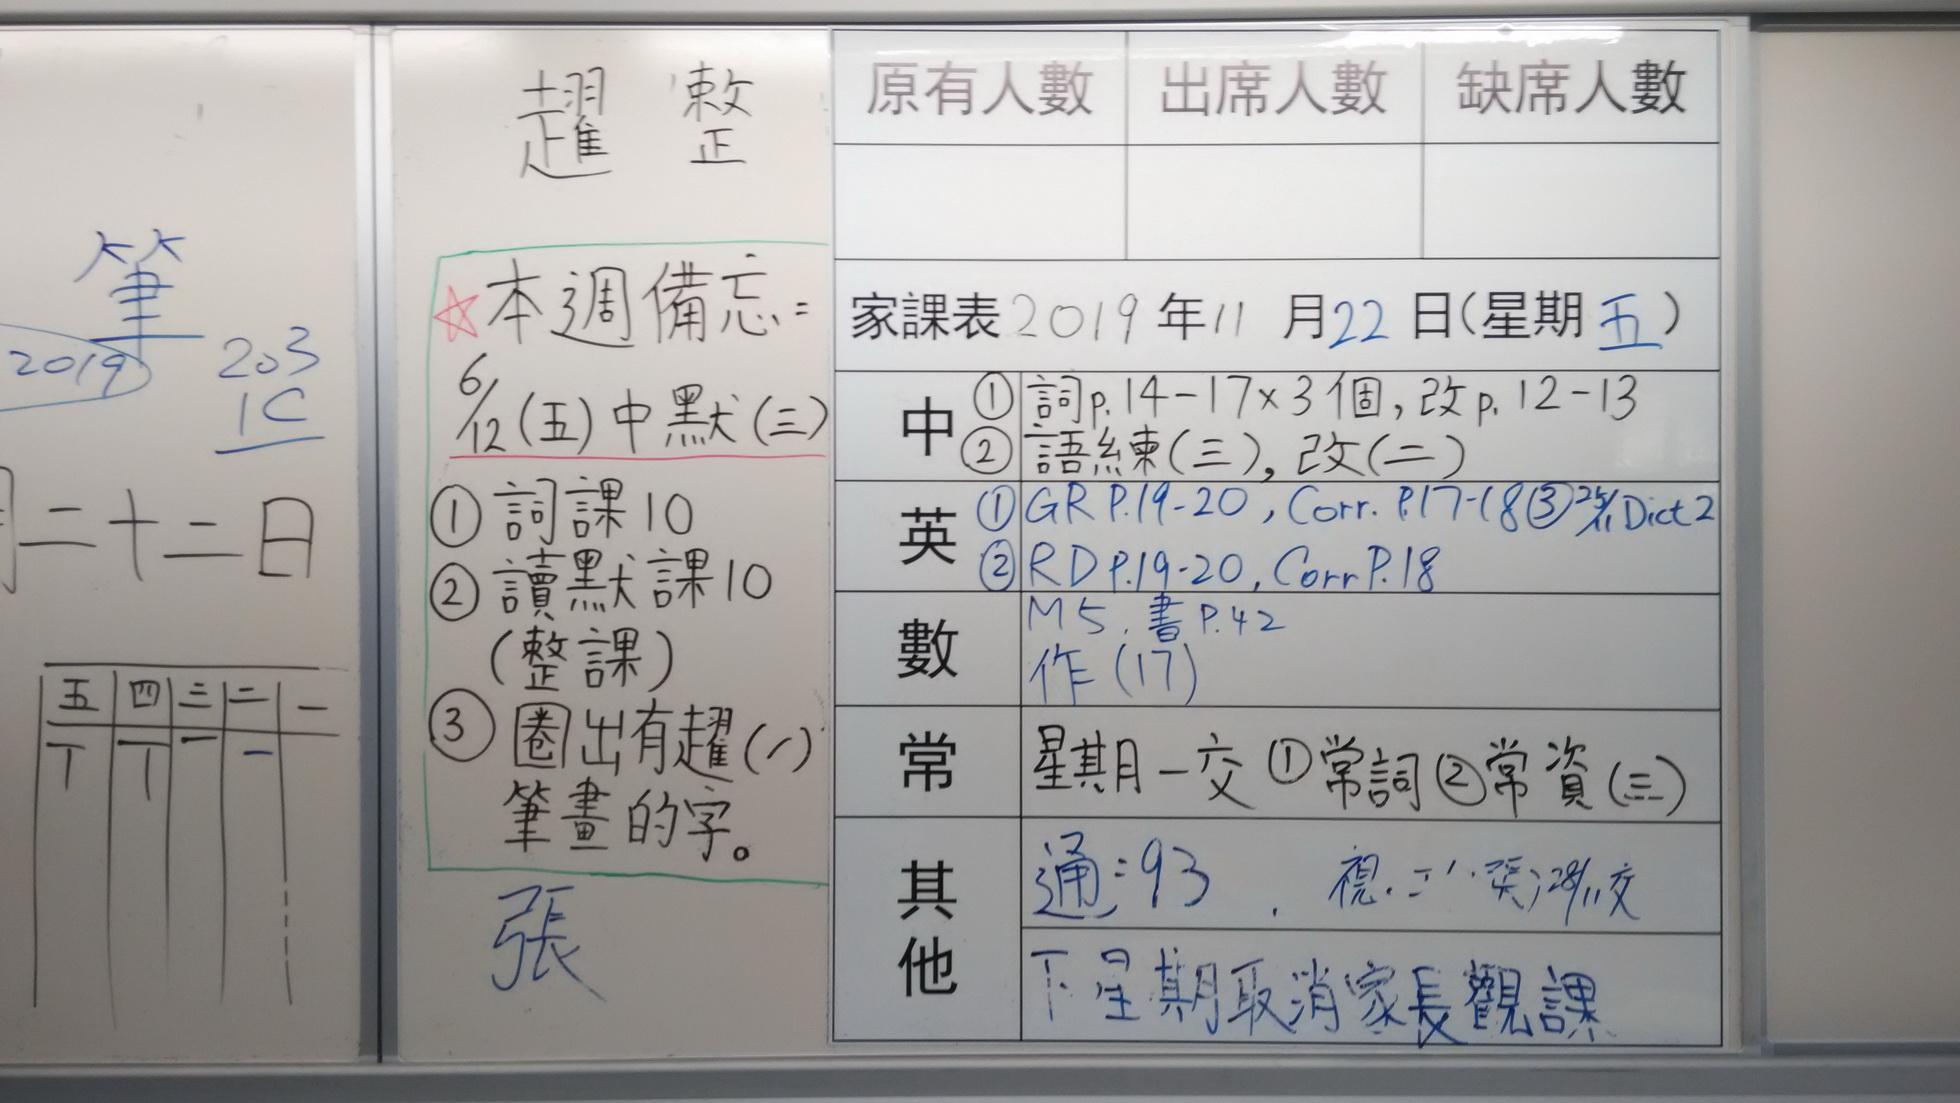 筆
2019
203
1C
二十二日
五 四 三 二 一
趯 整
☆本週備忘:
6/12(五)中默(三)
① 詞課10
② 讀默課10
(整課)
③ 圈出有趯(㇀)
筆畫的字。
張
原有人數 出席人數 缺席人數
家課表 2019 年 11 月 22 日(星期 五)
中 ① 詞p.14-17×3個,改p.12-13
② 語練(三),改(二)
英 ① GR P.19-20, Corr. P.17-18 ③ 25/11 Dict 2
② RD P.19-20, Corr P.18
數 M5. 書P.42
作(17)
常 星期一交 ①常詞 ②常資(三)
其他 通:93 . 視. 28/11交
下星期取消家長觀課